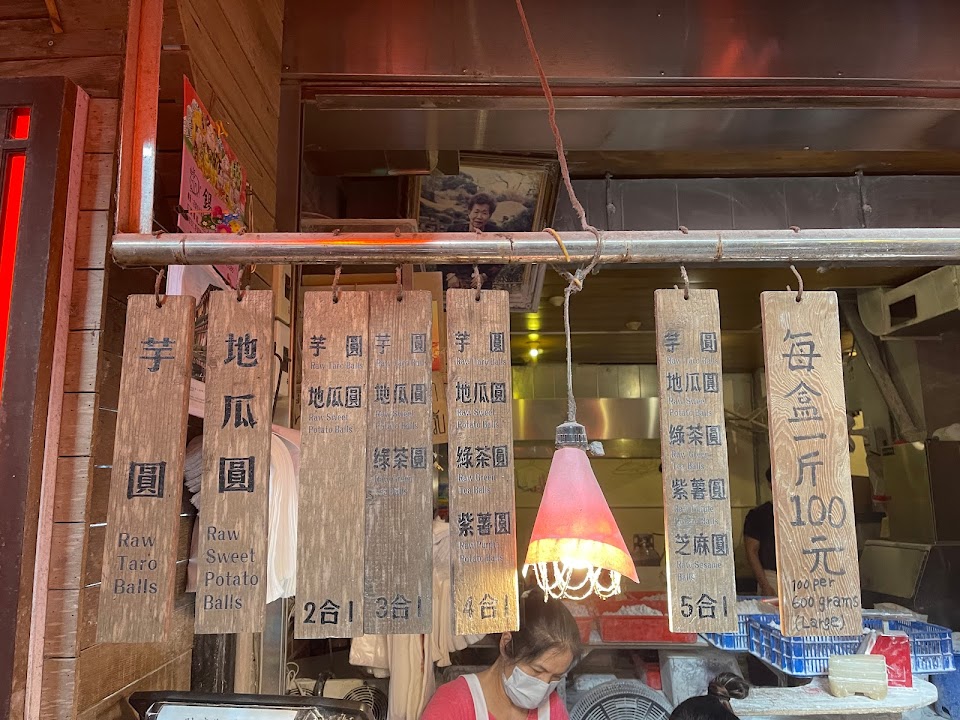 芋圓
Raw
Taro
Balls
地瓜圓
Raw
Sweet
Potato
Balls
芋圓
Raw Taro Balls
地瓜圓
Raw Sweet
Potato Balls
2合1
芋圓
地瓜圓
綠茶圓
3合1
芋圓
Raw Taro Balls
地瓜圓
Raw Sweet
Potato Balls
綠茶圓
Raw Green
Tea Balls
紫薯圓
Raw Purple
Potato Balls
4合1
芋圓
地瓜圓
Raw Sweet
Potato Balls
綠茶圓
Raw Green
Tea Balls
紫薯圓
芝麻圓
Raw Sesame
Balls
5合1
每盒一斤100元
100 per
600 grams
(Large)